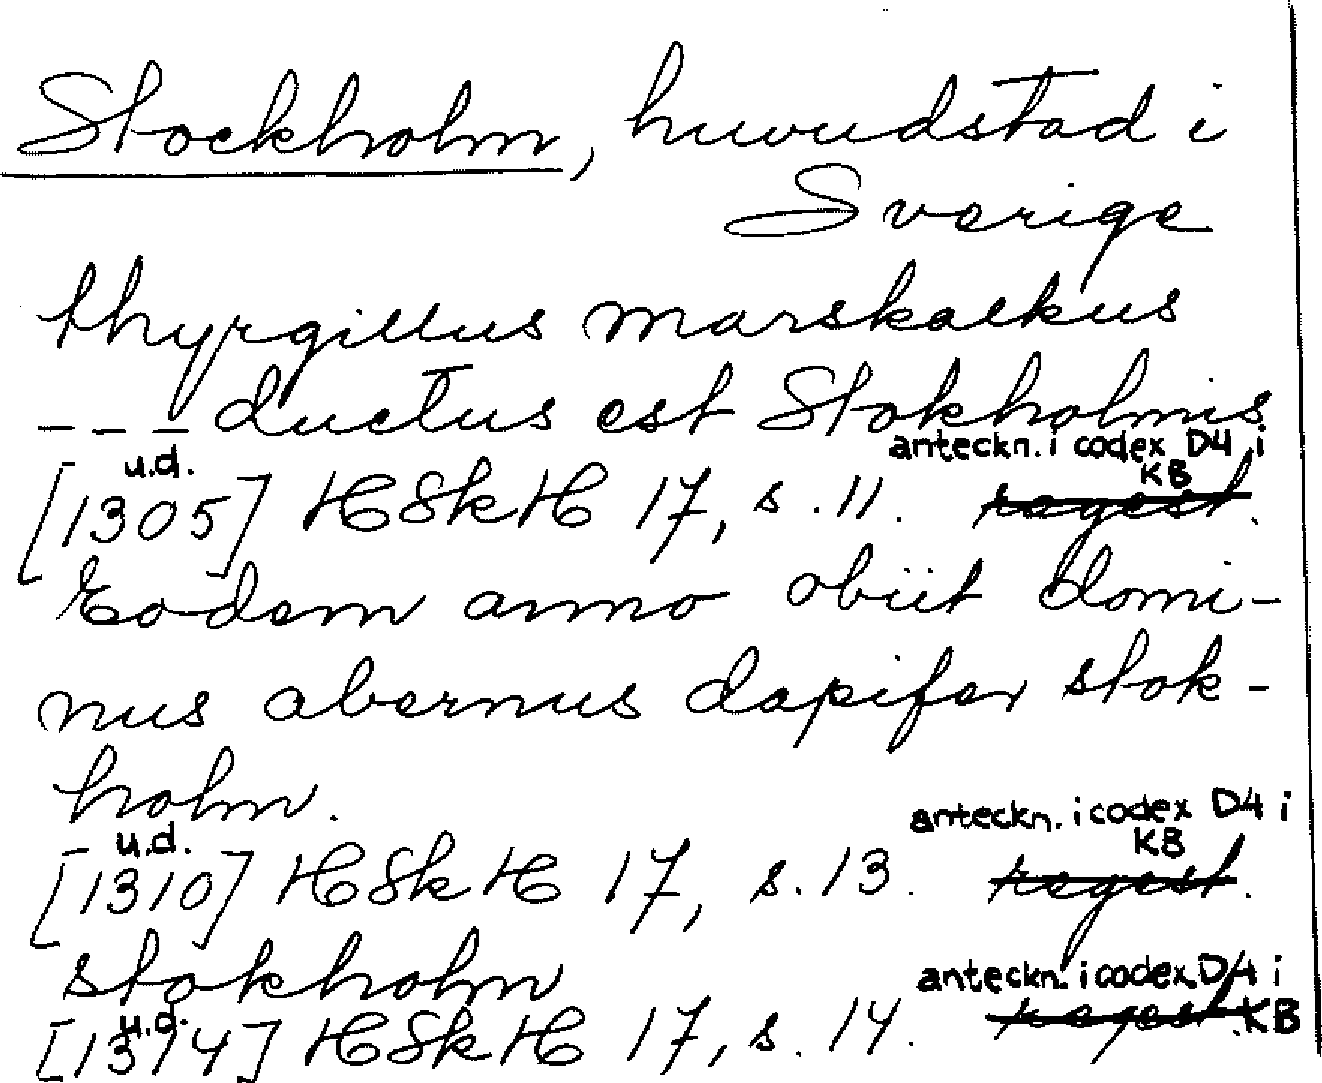 Stockholm, huvudstad i
Sverige
thyrgillus marskalkus
--- ductus est Stokholmis
u.d. anteckn. i codex D4 i KB
[1305] HSkH 17, s. 11. regest.
Eodem anno obiit domi-
nus abernus dapifer stok-
holm.
u.d. anteckn. i codex D4 i KB
[1310] HSkH 17, s. 13. regest.
stokholm
u.d. anteckn. i codex D4 i KB
[1314] HSkH 17, s. 14. regest.